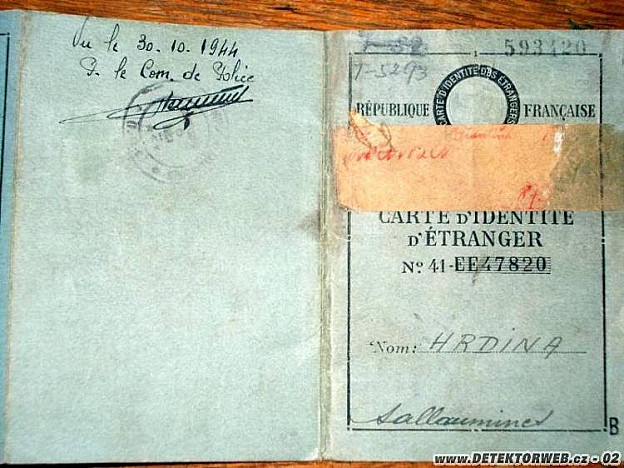 Vu le 30-10-1944
P. le Com. de Police
T-52
T-5293
593420
CARTE D'IDENTITÉ DES ÉTRANGERS
RÉPUBLIQUE FRANÇAISE
CARTE D'IDENTITÉ
D'ÉTRANGER
Nº 41-EE47820
Nom: HRDINA
Sallaumines
B
www.DETEKTORWEB.cz - 02